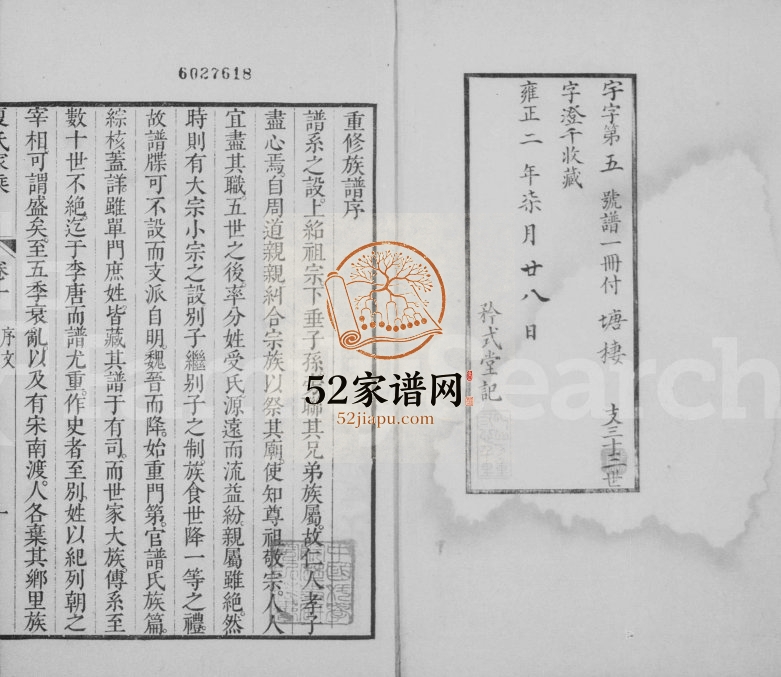 宇字第五 號譜一冊付 塘棲 支三十二世
字澄千收藏
雍正二 年柒月 廿八 日
矜式堂記
6027618
重修族譜序
譜系之設。上紹祖宗下垂子孫 聯其兄弟族屬。故仁人孝子
盡心焉。自周道親親糾合宗族以祭其廟。使知尊祖敬宗。人人
宜盡其職。五世之後。率分姓受氏源遠而流益紛。親屬雖絶。然
時則有大宗小宗之設。別子繼別子之制。族食世降一等之禮
故譜牒可不設而支派自明。魏晉而降。始重門第。官譜氏族篇。
綜核蓋詳。雖單門庶姓皆藏其譜于有司。而世家大族。傳系至
數十世不絶。迄于李唐而譜尤重。作史者至別。姓以紀列朝之
宰相可謂盛矣。至五季衰亂以及有宋南渡。人各棄其鄉里族
夏氏家乘 卷一 序文 一
52家谱网
52jiapu.com
Search